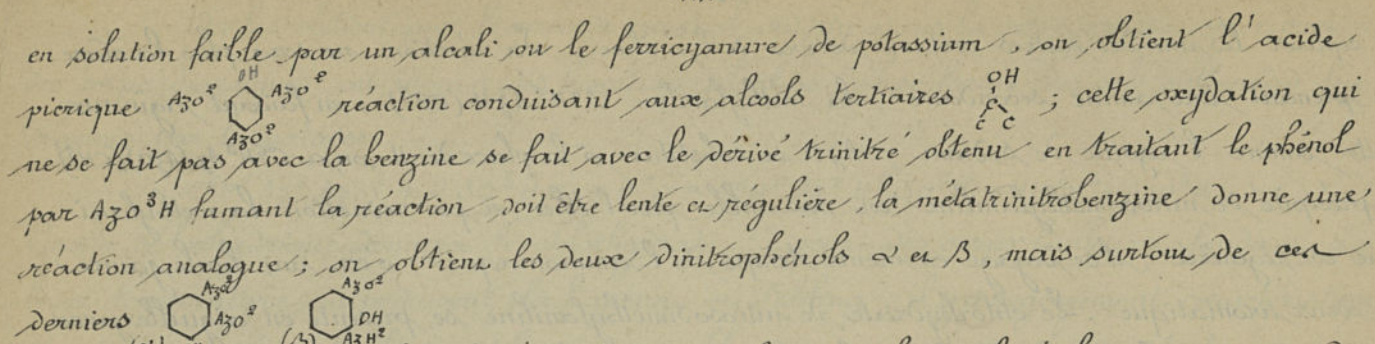 en solution faible par un alcali ou le ferricyanure de potassium, on obtient l'acide
picrique AzO² OH AzO² AzO² réaction conduisant aux alcools tertiaires OH C C C ; cette oxydation qui
ne se fait pas avec la benzine se fait avec le dérivé trinitré obtenu en traitant le phénol
par AzO³H fumant la réaction doit être lente et régulière, la métatrinitrobenzine donne une
réaction analogue ; on obtient les deux dinitrophénols α et β, mais surtout de ces
derniers AzO² AzO² AzO² OH AzH²